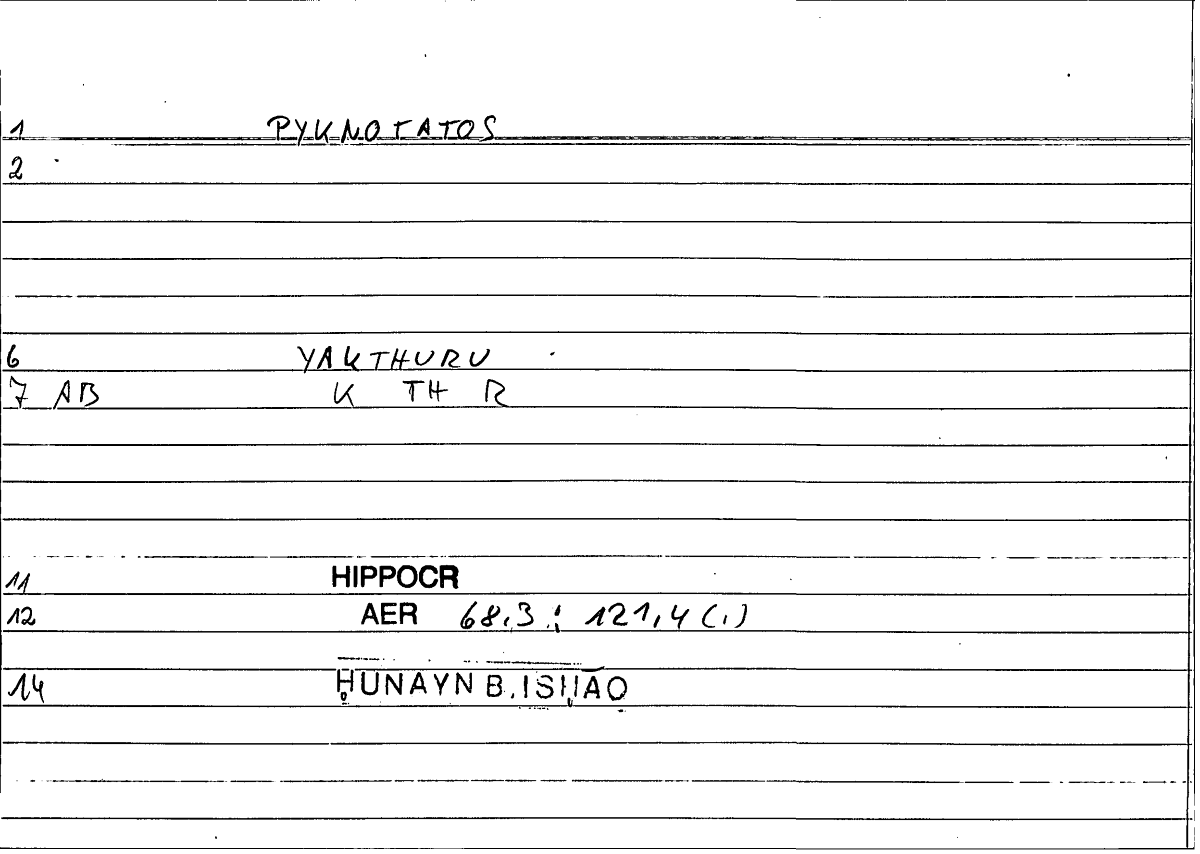 1 PYKNOTATOS
2
6 YAKTHURU
7 AB K TH R
11 HIPPOCR
12 AER 68,3 ; 121,4 (,)
14 ḤUNAYN B. ISḤĀQ